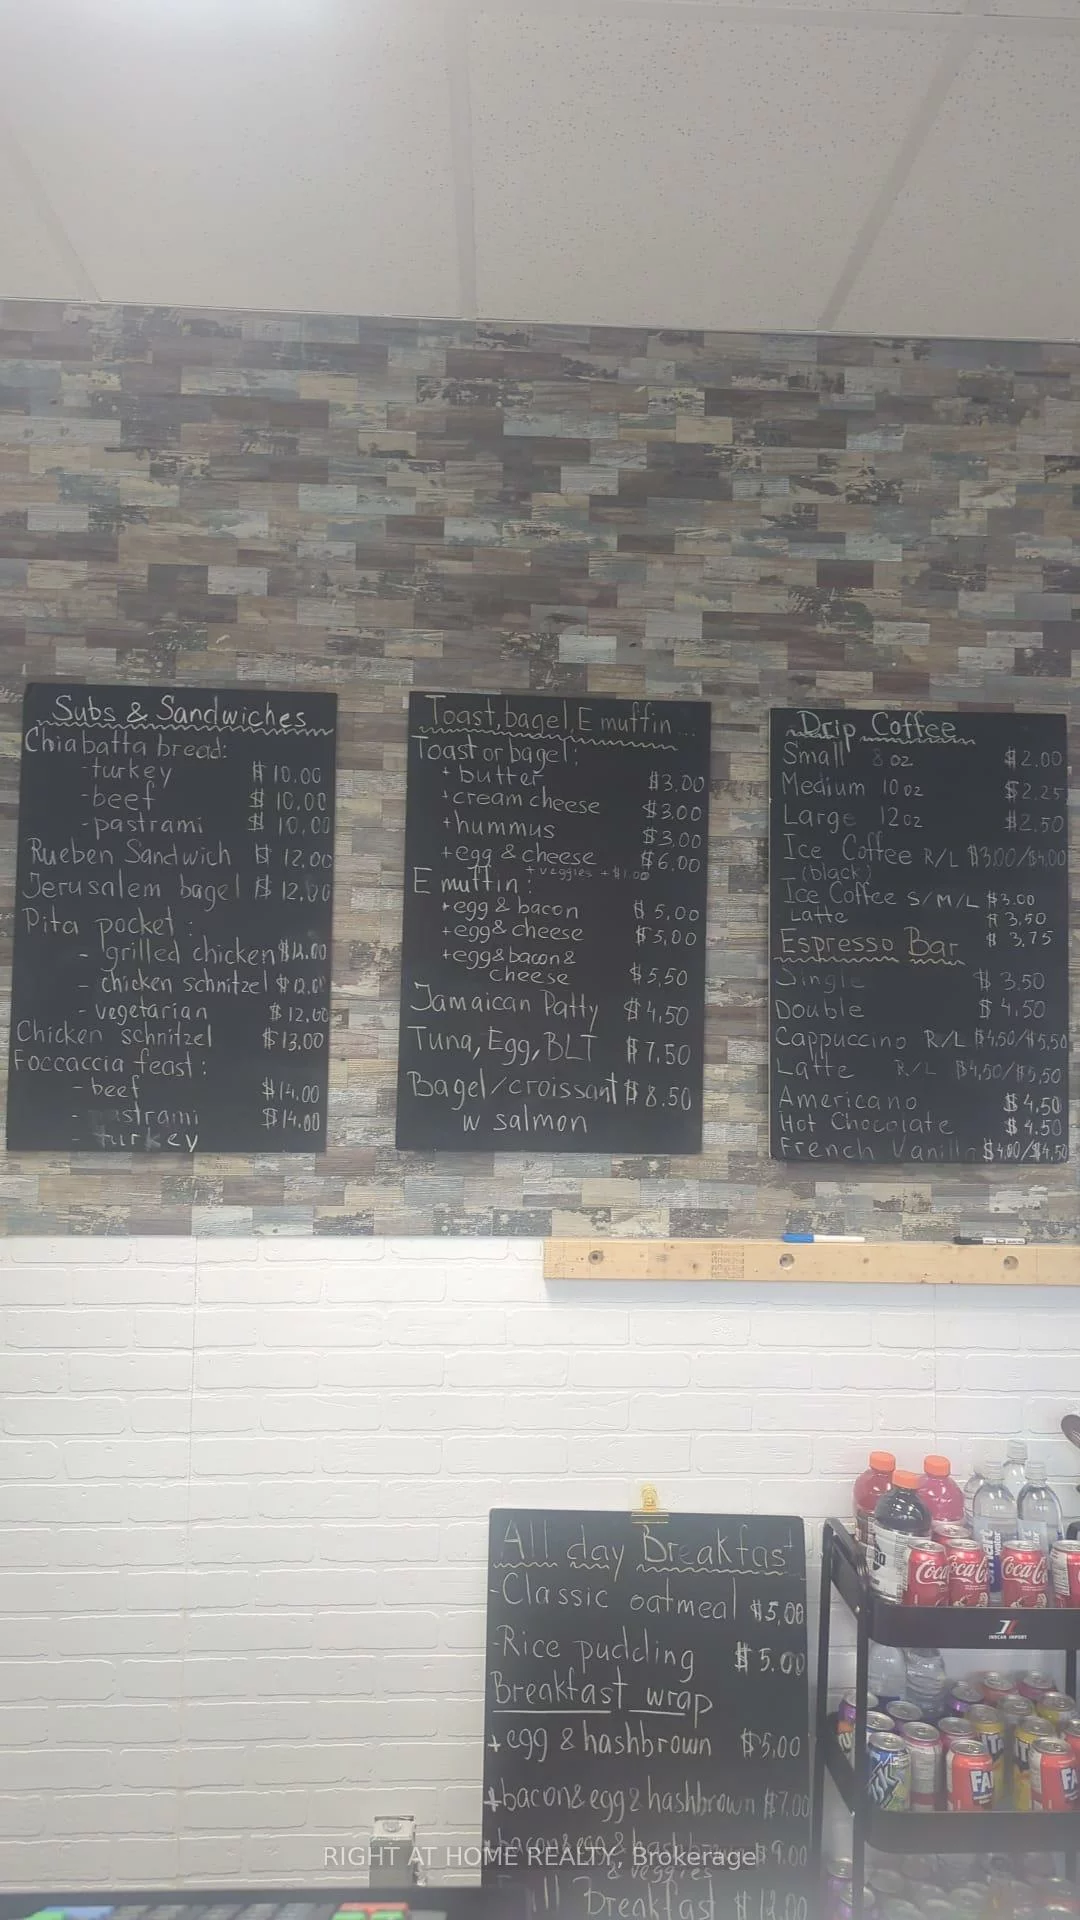 Subs & Sandwiches
Chiabatta bread:
-turkey $ 10.00
-beef $ 10.00
-pastrami $ 10.00
Rueben Sandwich $ 12.00
Jerusalem bagel $ 12.00
Pita pocket:
- grilled chicken
- chicken schnitzel $12.00
- vegetarian $12.00
Chicken schnitzel $13.00
Foccaccia feast:
- beef $14.00
- astrami $14.00
- turkey
Toast, bagel, E muffin...
Toast or bagel:
+ butter $3.00
+cream cheese $3.00
+hummus $3.00
+egg & cheese $6.00
+ veggies + $1.00
E muffin:
+egg & bacon $ 5.00
+egg& cheese $5.00
+egg&bacon&
cheese $5.50
Jamaican Patty $4.50
Tuna, Egg, BLT $7.50
Bagel/croissant $8.50
w salmon
Drip Coffee
Small 8 oz $2.00
Medium 10 oz $2.25
Large 12 oz $2.50
Ice Coffee R/L $3.00/$4.00
(black)
Ice Coffee S/M/L $3.00
Latte $ 3.50
$ 3.75
Espresso Bar
Single $ 3.50
Double $ 4.50
Cappuccino R/L $4.50/$5.50
Latte R/L $4.50/$5.50
Americano $4.50
Hot Chocolate $ 4.50
French Vanilla $4.00/$4.50
All day Breakfast
-Classic oatmeal $5.00
-Rice pudding $5.00
Breakfast wrap
+egg & hashbrown $5.00
+bacon&egg&hashbrown $7.00
+bacon&egg&hashbrown $9.00
& veggies
Breakfast $12.00
Coca-Cola
smart water
JL
INSCAN IMPORT
RIGHT AT HOME REALTY, Brokerage